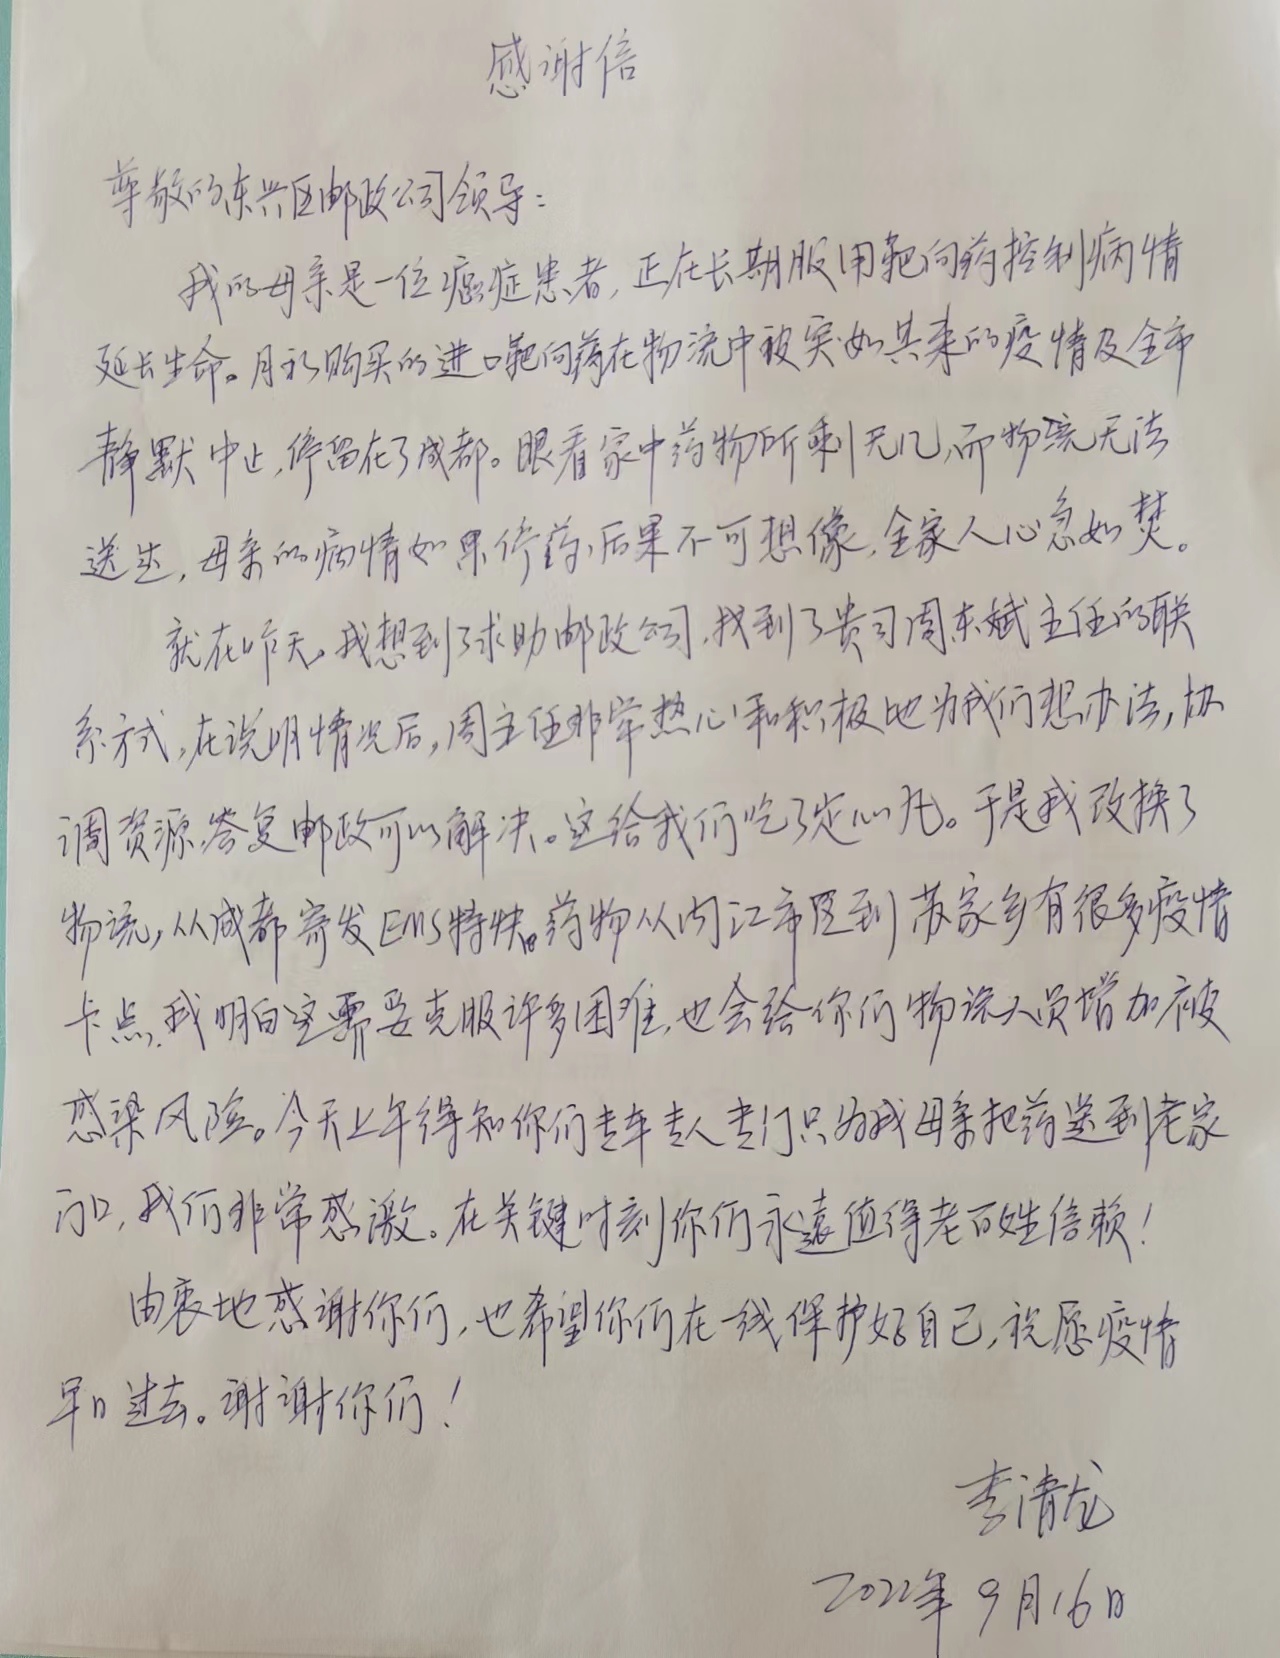 感谢信
尊敬的东兴区邮政公司领导：
我的母亲是一位癌症患者，正在长期服用靶向药控制病情
延长生命。月初购买的进口靶向药在物流中被突如其来的疫情及全市
静默中止，停留在了成都。眼看家中药物所剩无几，而物流无法
送达，母亲的病情如果停药，后果不可想像，全家人心急如焚。
就在昨天，我想到了求助邮政公司，找到了贵司周东斌主任的联
系方式，在说明情况后，周主任非常热心和积极地为我们想办法，协
调资源，答复邮政可以解决。这给我们吃了定心丸。于是我改换了
物流，从成都寄发EMS特快。药物从内江市区到苏家乡有很多疫情
卡点，我明白这需要克服许多困难，也会给你们物流人员增加被
感染风险。今天上午得知你们专车专人专门只为我母亲把药送到老家
门口，我们非常感激。在关键时刻你们永远值得老百姓信赖！
由衷地感谢你们，也希望你们在一线保护好自己，祝愿疫情
早日过去。谢谢你们！
李清龙
2022年9月16日